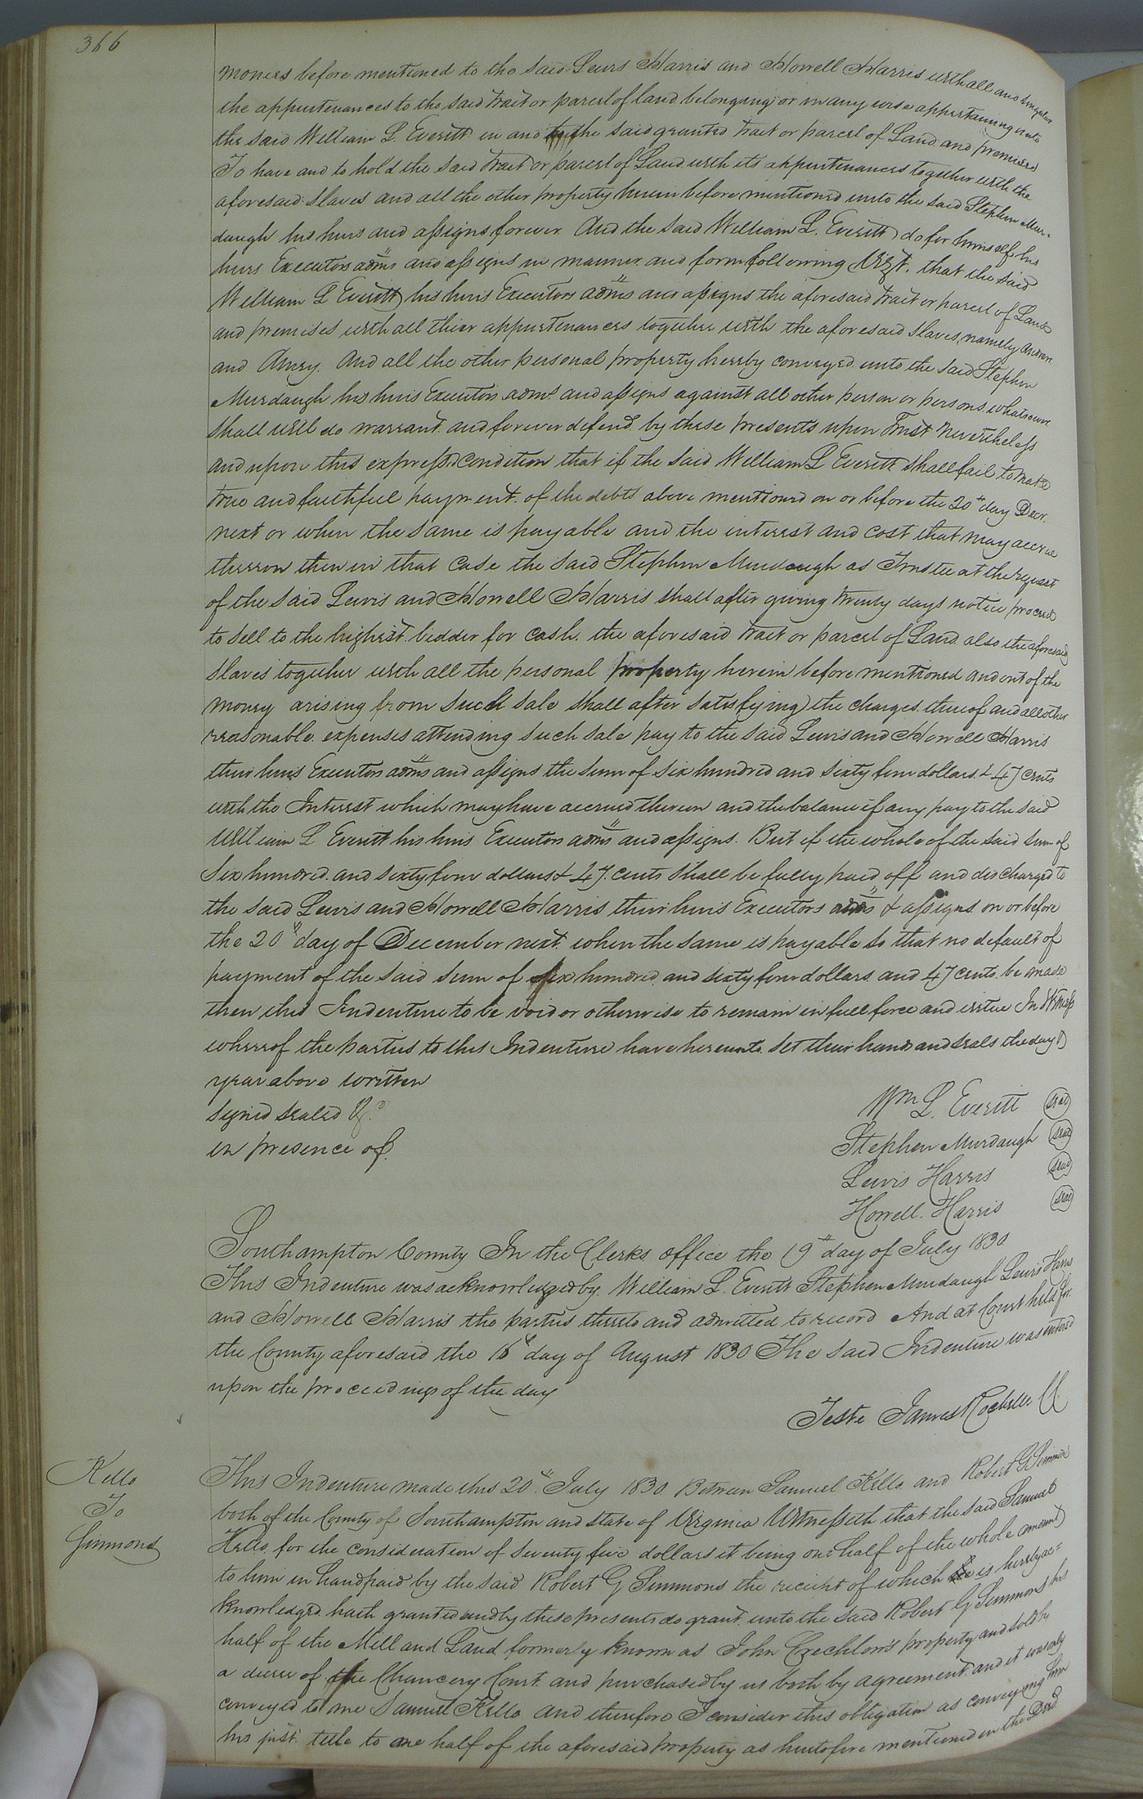 366
monies before mentioned to the said Lewis Harris and Howell Harris with all and singular
the appurtenances to the said tract or parcel of land belonging or in any wise appertaining unto
the said William L. Everitt in and to the said granted tract or parcel of Land and premises
To have and to hold the said tract or parcel of Land with its appurtenances together with the
aforesaid slaves and all the other property herein before mentioned unto the said Stephen Mur-
daugh his heirs and assigns forever And the said William L. Everitt do for himself his
heirs Executors adms and assigns in manner and form following Vizt. that the said
William L Everitt his heirs Executors adms and assigns the aforesaid tract or parcel of Land
and premises with all their appurtenances together with the aforesaid slaves, namely
and Amey. And all the other personal property hereby conveyed unto the said Stephen
Murdaugh his heirs Executors admr and assigns against all other person or persons whatsoever
shall will do warrant and forever defend by these presents upon Trust Nevertheless
and upon this express condition that if the said William L Everitt shall fail to make
true and faithful payment of the debts above mentioned on or before the 20th day Decr.
next or when the same is payable and the interest and cost that may accrue
thereon then in that case the said Stephen Murdaugh as Trustee at the request
of the said Lewis and Howell Harris shall after giving twenty days notice proceed
to sell to the highest bidder for cash the aforesaid tract or parcel of Land also the aforesaid
slaves together with all the personal property herein before mentioned and out of the
money arising from such sale shall after satisfying the charges thereof and all other
reasonable expenses attending such sale pay to the said Lewis and Howell Harris
their heirs Executors adms and assigns the sum of six hundred and sixty four dollars & 47 cents
with the Interest which may have accrued thereon and the balance if any pay to the said
William L Everitt his heirs Executors adms and assigns. But if the whole of the said sum of
Six hundred and sixty four dollars & 47. cents shall be fully paid off and discharged to
the said Lewis and Howell Harris their heirs Executors adms & assigns on or before
the 20th day of December next when the same is payable so that no default of
payment of the said sum of six hundred and sixty four dollars and 47 cents be made
then this Indenture to be void or otherwise to remain in full force and virtue In Witness
whereof the parties to this Indenture have hereunto set their hands and seals the day &
year above written
signed sealed &c
in presence of
Wm L. Everitt seal
Stephen Murdaugh seal
Lewis Harris seal
Howell. Harris seal
Southampton County In the Clerks office the 19th day of July 1830
This Indenture was acknowledged by William L. Everitt Stephen Murdaugh Lewis Harris
and Howell Harris the parties thereto and admitted to record And at Court held for
the County aforesaid the 16th day of August 1830 The said Indenture was entered
upon the proceedings of the day
Teste James Rochelle CC
Kello
To
Simmons
This Indenture made this 20th July 1830 Between Samuel Kello and Robert G Simmons
both of the County of Southampton and state of Virginia Witnesseth that the said Samuel
Kello for the consideration of seventy five dollars it being one half of the whole amount
to him in hand paid by the said Robert G Simmons the receipt of which is hereby ac=
knowledged hath granted and by these presents do grant unto the said Robert G Simmons his
half of the Mill and Land formerly known as John property and sold by
a decree of the Chancery Court and purchased by us both by agreement and it was only
conveyed to me Samuel Kello and therefore I consider this obligation as conveying him
his just title to one half of the aforesaid property as heretofore mentioned in the Deed